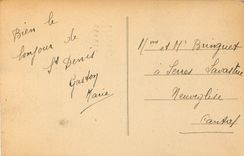 Bien le
bonjour de
St Denis
Gaston
Marie
Mme et Mr Bringuet
à Serres Lavastrie
Neuvéglise
Cantal